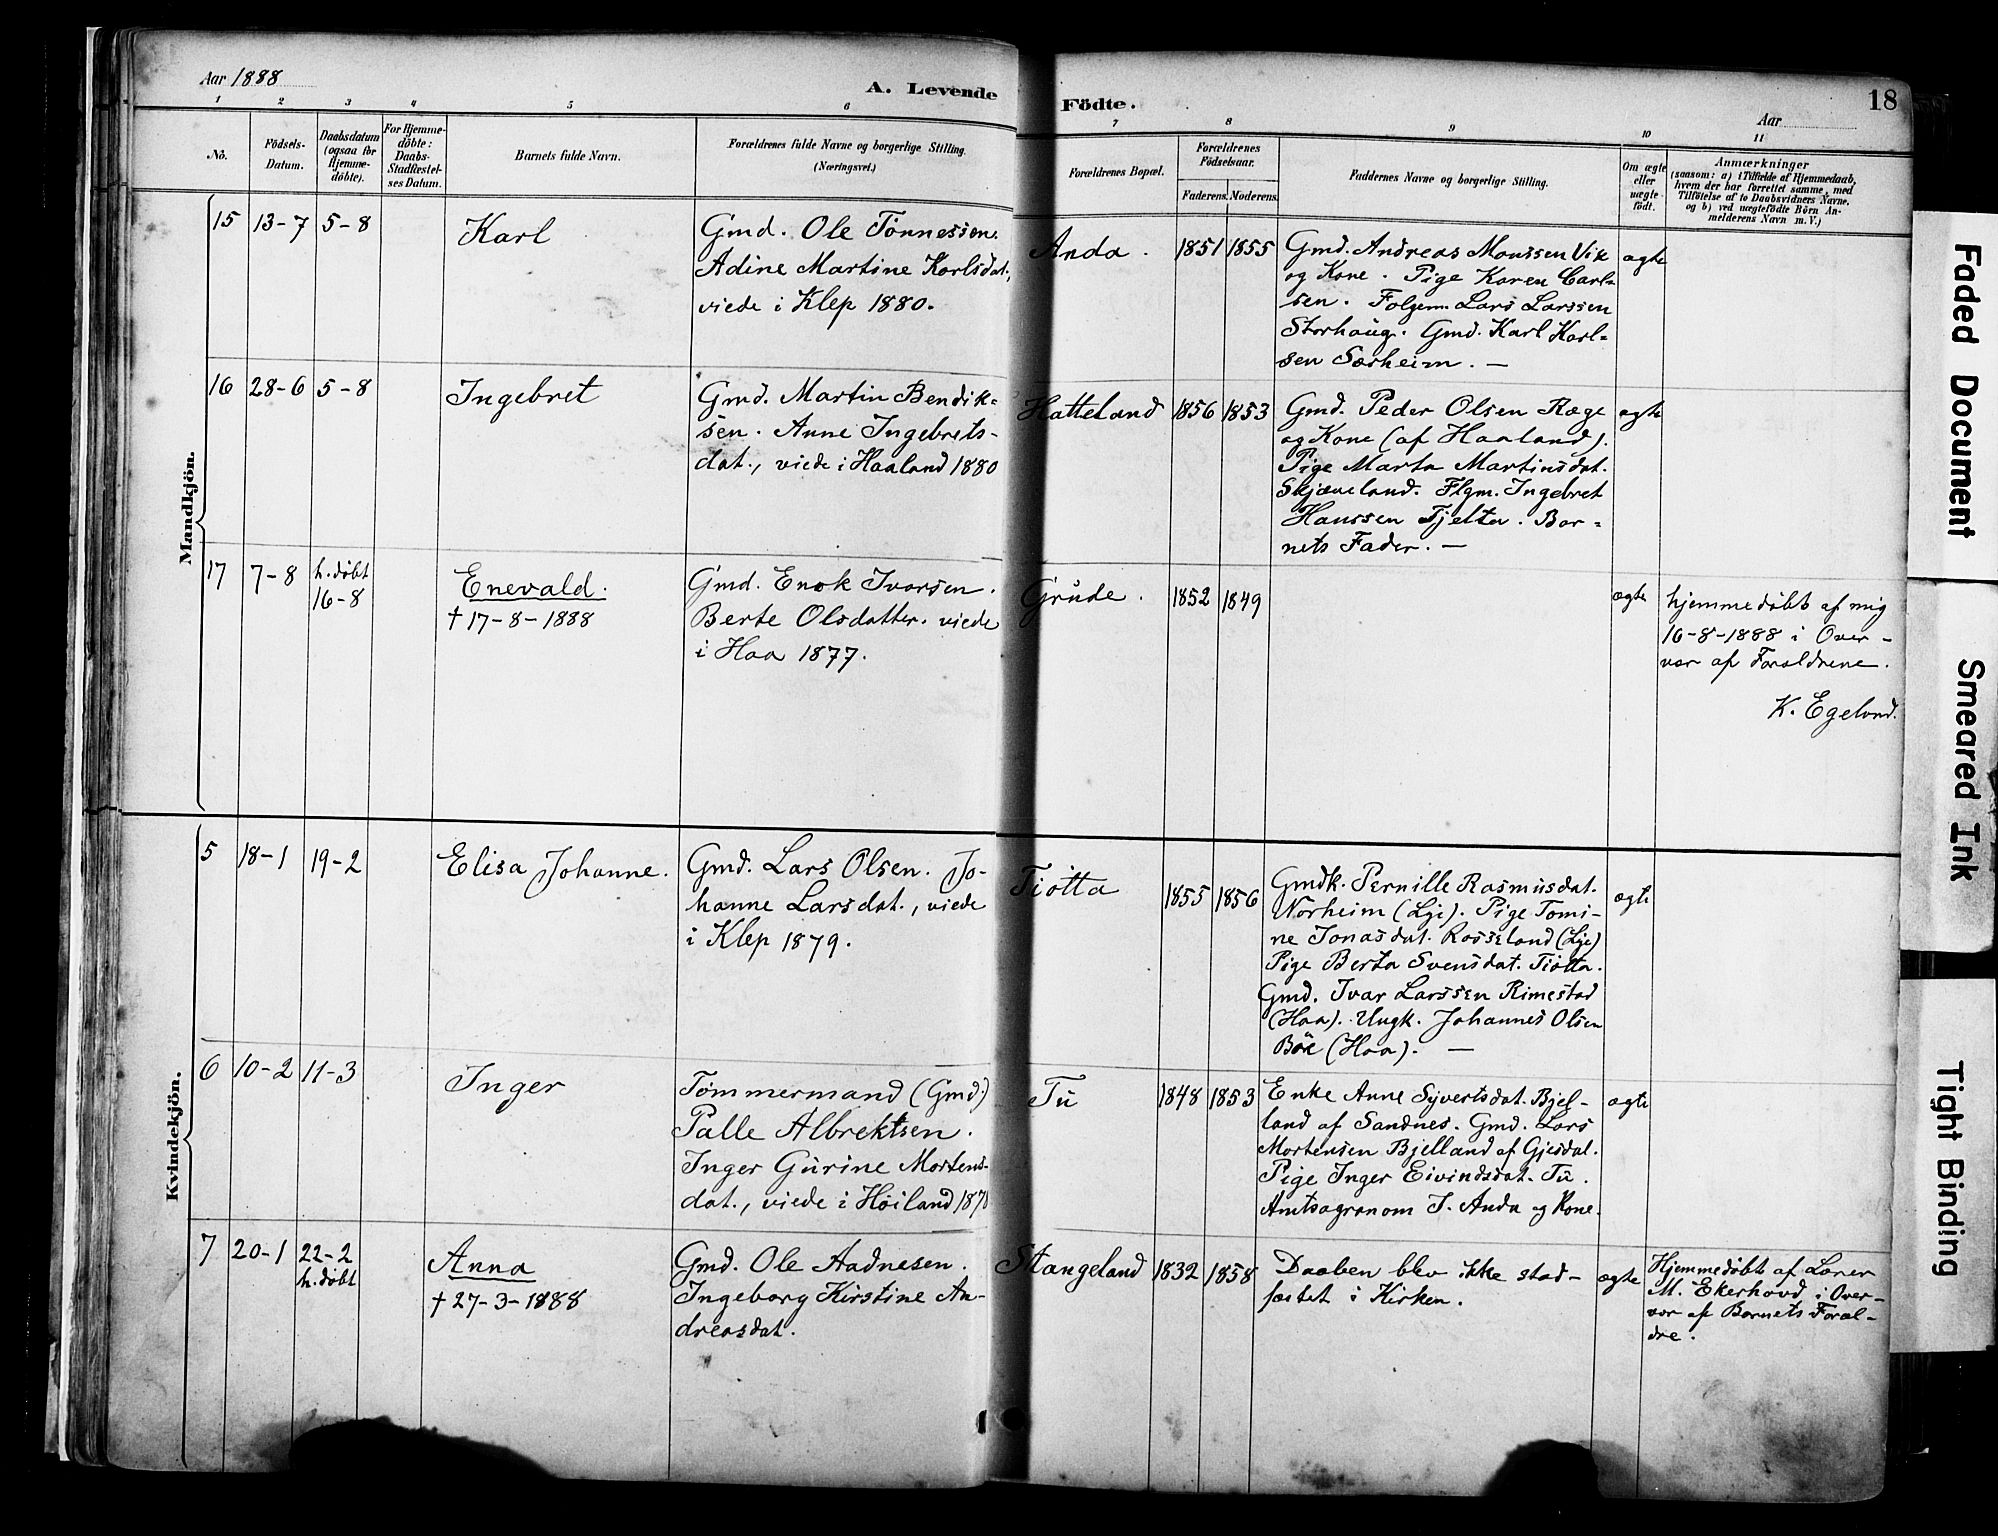 Aar 1888
A. Levende
Födte.
18
Aar
1 2 3 4 5 6 7 8 9 10 11
No.
Födsels-
Datum.
Daabsdatum
(ogsaa for
Hjemme-
döbte).
For Hjemme-
döbte:
Daabs-
Stadfæstel-
ses Datum.
Barnets fulde Navn.
Forældrenes fulde Navne og borgerlige Stilling.
(Næringsvei.)
Forældrenes Bopæl.
Forældrenes
Födselsaar.
Faderens. Moderens.
Faddernes Navne og borgerlige Stilling.
Om ægte
eller
uægte
födt.
Anmærkninger
(saasom: a) i Tilfælde af Hjemmedaab,
hvem der har forrettet samme, med
Tilföielse af to Daabsvidners Navne,
og b) ved uægtefödte Börn An-
melderens Navn m.V.)
Mandkjön.
15 13-7 5-8
Karl
Gmd. Ole Tønnessen.
Adine Martine Karlsdat.,
viede i Klep 1880.
Anda.
1851 1855
Gmd. Andreas Monssen Vik
og Kone. Pige Karen Carl-
sen. Følgem. Lars Larssen
Storhaug. Gmd. Karl Karl-
sen Sørheim. —
ægte
16 28-6 5-8
Ingebret
Gmd. Martin Bendik-
sen. Anne Ingebrets-
dat., viede i Haaland 1880
Hatteland
1856 1853
Gmd. Peder Olsen Ræge
og Kone (af Haaland).
Pige Marta Martinsdat.
Skjæveland. Flgm. Ingebret
Hanssen Tjelta. Bar-
nets Fader. —
ægte
17 7-8
h. døbt
16-8
Enevald.
† 17-8-1888
Gmd. Enok Ivarsen.
Berte Olsdatter. viede
i Haa 1877.
Grude.
1852 1849
ægte
hjemmedøbt af mig
16-8-1888 i Over-
vær af Forældrene.
K. Egeland.
Kvindekjön.
5 18-1 19-2
Elisa Johanne.
Gmd. Lars Olsen. Jo-
hanne Larsdat., viede
i Klep 1879.
Tiøtta
1855 1856
Gmdk. Pernille Rasmusdat.
Norheim (Lye). Pige Tomi-
ne Jonasdat. Rosseland (Lye)
Pige Berta Svensdat. Tiøtta.
Gmd. Ivar Larssen Rimestad
(Haa). Ungk. Johannes Olsen
Bøe (Haa). —
ægte
6 10-2 11-3
Inger
Tømmermand (Gmd.)
Palle Albrektsen.
Inger Gurine Mortens-
dat., viede i Høiland 1878
Tu
1848 1853
Enke Anne Syvertsdat. Bjel-
land af Sandnes. Gmd. Lars
Mortensen Bjelland af Gjesdal.
Pige Inger Eivindsdat. Tu.
Amtsagronom J. Anda og Kone.
ægte
7 20-1
22-2
h. døbt
Anna
† 27-3-1888
Gmd. Ole Aadnesen.
Ingeborg Kirstine An-
dreasdat.
Stangeland
1832 1858
Daaben blev ikke stad-
fæstet i Kirken.
ægte
Hjemmedøbt af Lærer
M. Ekerhovd i Over-
vær af Barnets Foræl-
dre.
Faded Document
Smeared Ink
Tight Binding